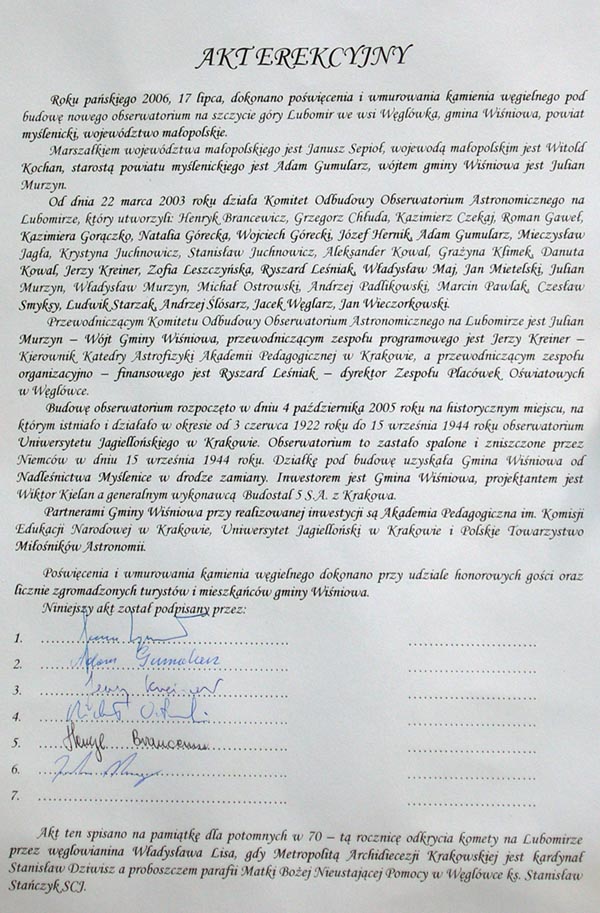 AKT EREKCYJNY
Roku pańskiego 2006, 17 lipca, dokonano poświęcenia i wmurowania kamienia węgielnego pod
budowę nowego obserwatorium na szczycie góry Lubomir we wsi Węglówka, gmina Wiśniowa, powiat
myślenicki, województwo małopolskie.
Marszałkiem województwa małopolskiego jest Janusz Sepioł, wojewodą małopolskim jest Witold
Kochan, starostą powiatu myślenickiego jest Adam Gumularz, wójtem gminy Wiśniowa jest Julian
Murzyn.
Od dnia 22 marca 2003 roku działa Komitet Odbudowy Obserwatorium Astronomicznego na
Lubomirze, który utworzyli: Henryk Brancewicz, Grzegorz Chłuda, Kazimierz Czekaj, Roman Gaweł,
Kazimiera Gorączko, Natalia Górecka, Wojciech Górecki, Józef Hernik, Adam Gumularz, Mieczysław
Jagła, Krystyna Juchnowicz, Stanisław Juchnowicz, Aleksander Kowal, Grażyna Klimek, Danuta
Kowal, Jerzy Kreiner, Zofia Leszczyńska, Ryszard Leśniak, Władysław Maj, Jan Mietelski, Julian
Murzyn, Władysław Murzyn, Michał Ostrowski, Andrzej Padlikowski, Marcin Pawlak, Czesław
Smyksy, Ludwik Starzak, Andrzej Ślósarz, Jacek Węglarz, Jan Wieczorkowski.
Przewodniczącym Komitetu Odbudowy Obserwatorium Astronomicznego na Lubomirze jest Julian
Murzyn – Wójt Gminy Wiśniowa, przewodniczącym zespołu programowego jest Jerzy Kreiner –
Kierownik Katedry Astrofizyki Akademii Pedagogicznej w Krakowie, a przewodniczącym zespołu
organizacyjno – finansowego jest Ryszard Leśniak – dyrektor Zespołu Placówek Oświatowych
w Węglówce.
Budowę obserwatorium rozpoczęto w dniu 4 października 2005 roku na historycznym miejscu, na
którym istniało i działało w okresie od 3 czerwca 1922 roku do 15 września 1944 roku obserwatorium
Uniwersytetu Jagiellońskiego w Krakowie. Obserwatorium to zastało spalone i zniszczone przez
Niemców w dniu 15 września 1944 roku. Działkę pod budowę uzyskała Gmina Wiśniowa od
Nadleśnictwa Myślenice w drodze zamiany. Inwestorem jest Gmina Wiśniowa, projektantem jest
Wiktor Kielan a generalnym wykonawcą Budostal 5 S.A. z Krakowa.
Partnerami Gminy Wiśniowa przy realizowanej inwestycji są Akademia Pedagogiczna im. Komisji
Edukacji Narodowej w Krakowie, Uniwersytet Jagielloński w Krakowie i Polskie Towarzystwo
Miłośników Astronomii.
Poświęcenia i wmurowania kamienia węgielnego dokonano przy udziale honorowych gości oraz
licznie zgromadzonych turystów i mieszkańców gminy Wiśniowa.
Niniejszy akt został podpisany przez:
1.
2. Adam Gumularz
3. Jerzy Kreiner
4.
5.
6.
7.
Akt ten spisano na pamiątkę dla potomnych w 70 – tą rocznicę odkrycia komety na Lubomirze
przez węglowianina Władysława Lisa, gdy Metropolitą Archidiecezji Krakowskiej jest kardynał
Stanisław Dziwisz a proboszczem parafii Matki Bożej Nieustającej Pomocy w Węglówce ks. Stanisław
Stańczyk SCJ.